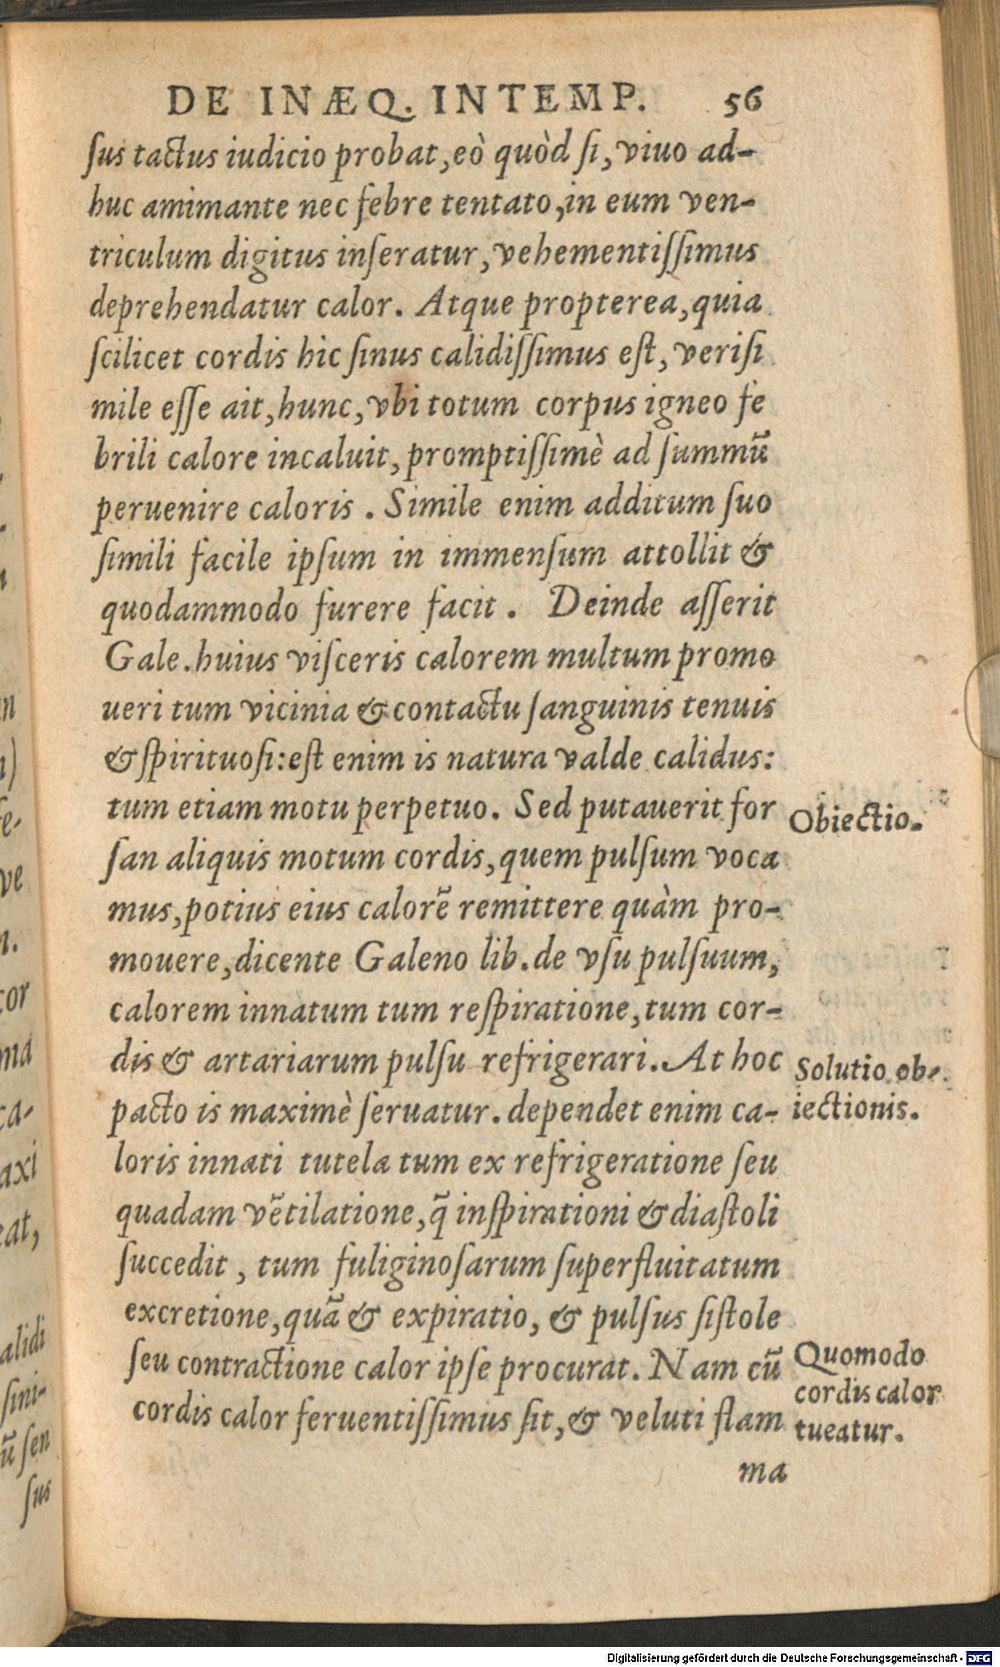 DE INÆQ. INTEMP. 56
ſus tactus iudicio probat, eò quòd ſi, viuo ad-
huc amimante nec febre tentato, in eum ven-
triculum digitus inſeratur, vehementiſſimus
deprehendatur calor. Atque propterea, quia
ſcilicet cordis hic ſinus calidiſſimus eſt, veriſi
mile eſſe ait, hunc, vbi totum corpus igneo fe
brili calore incaluit, promptiſſimè ad ſummũ
peruenire caloris. Simile enim additum ſuo
ſimili facile ipſum in immenſum attollit &
quodammodo furere facit. Deinde aſſerit
Gale. huius viſceris calorem multum promo
ueri tum vicinia & contactu ſanguinis tenuis
& ſpirituoſi: eſt enim is natura valde calidus:
tum etiam motu perpetuo. Sed putauerit for
Obiectio.
ſan aliquis motum cordis, quem pulſum voca
mus, potius eius calorẽ remittere quàm pro-
mouere, dicente Galeno lib. de vſu pulſuum,
calorem innatum tum reſpiratione, tum cor-
dis & artariarum pulſu refrigerari. At hoc
Solutio ob-
pacto is maximè ſeruatur. dependet enim ca-
iectionis.
loris innati tutela tum ex refrigeratione ſeu
quadam vẽtilatione, q̃ inſpirationi & diaſtoli
ſuccedit, tum fuliginoſarum ſuperfluitatum
excretione, quã & expiratio, & pulſus ſiſtole
ſeu contractione calor ipſe procurat. Nam cũ
Quomodo
cordis calor
cordis calor feruentiſſimus ſit, & veluti flam
tueatur.
ma
n
n)
fe-
ve
n.
cor
ma
ca-
axi
eat,
alidi
ſini-
ũ ſen
ſus
Digitalisierung gefördert durch die Deutsche Forschungsgemeinschaft - DFG